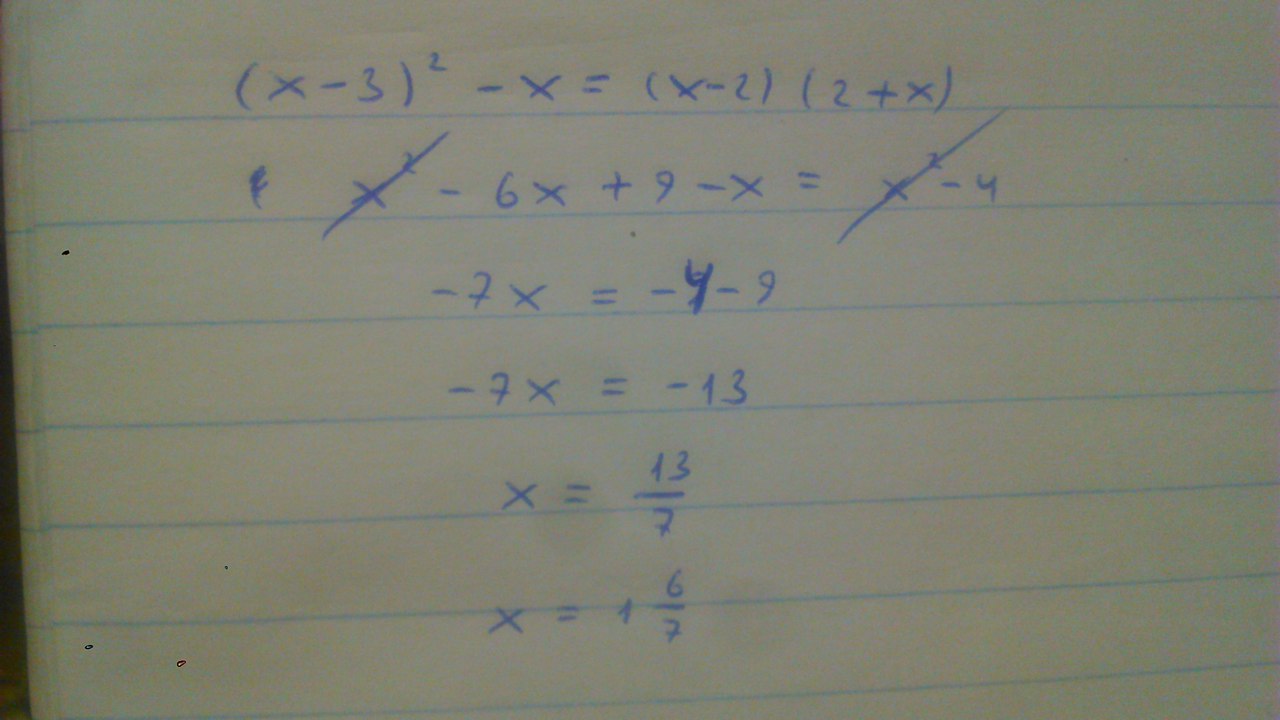 (x-3)² - x = (x-2) (2+x)
x² - 6x + 9 - x = x² - 4
-7x = -4 - 9
-7x = -13
x = 13/7
x = 1 6/7